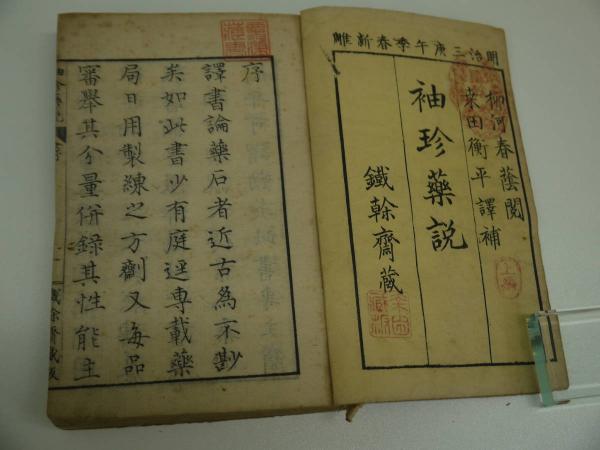 明治三庚午季春新雕
柳河春蔭閲
桒田衡平譯補
袖珍藥説
鐵榦齋藏
上編
序
譯書論藥石者近古為不尠
矣如此書少有庭逕專載藥
局日用製練之方劑又每品
審舉其分量併録其性能主